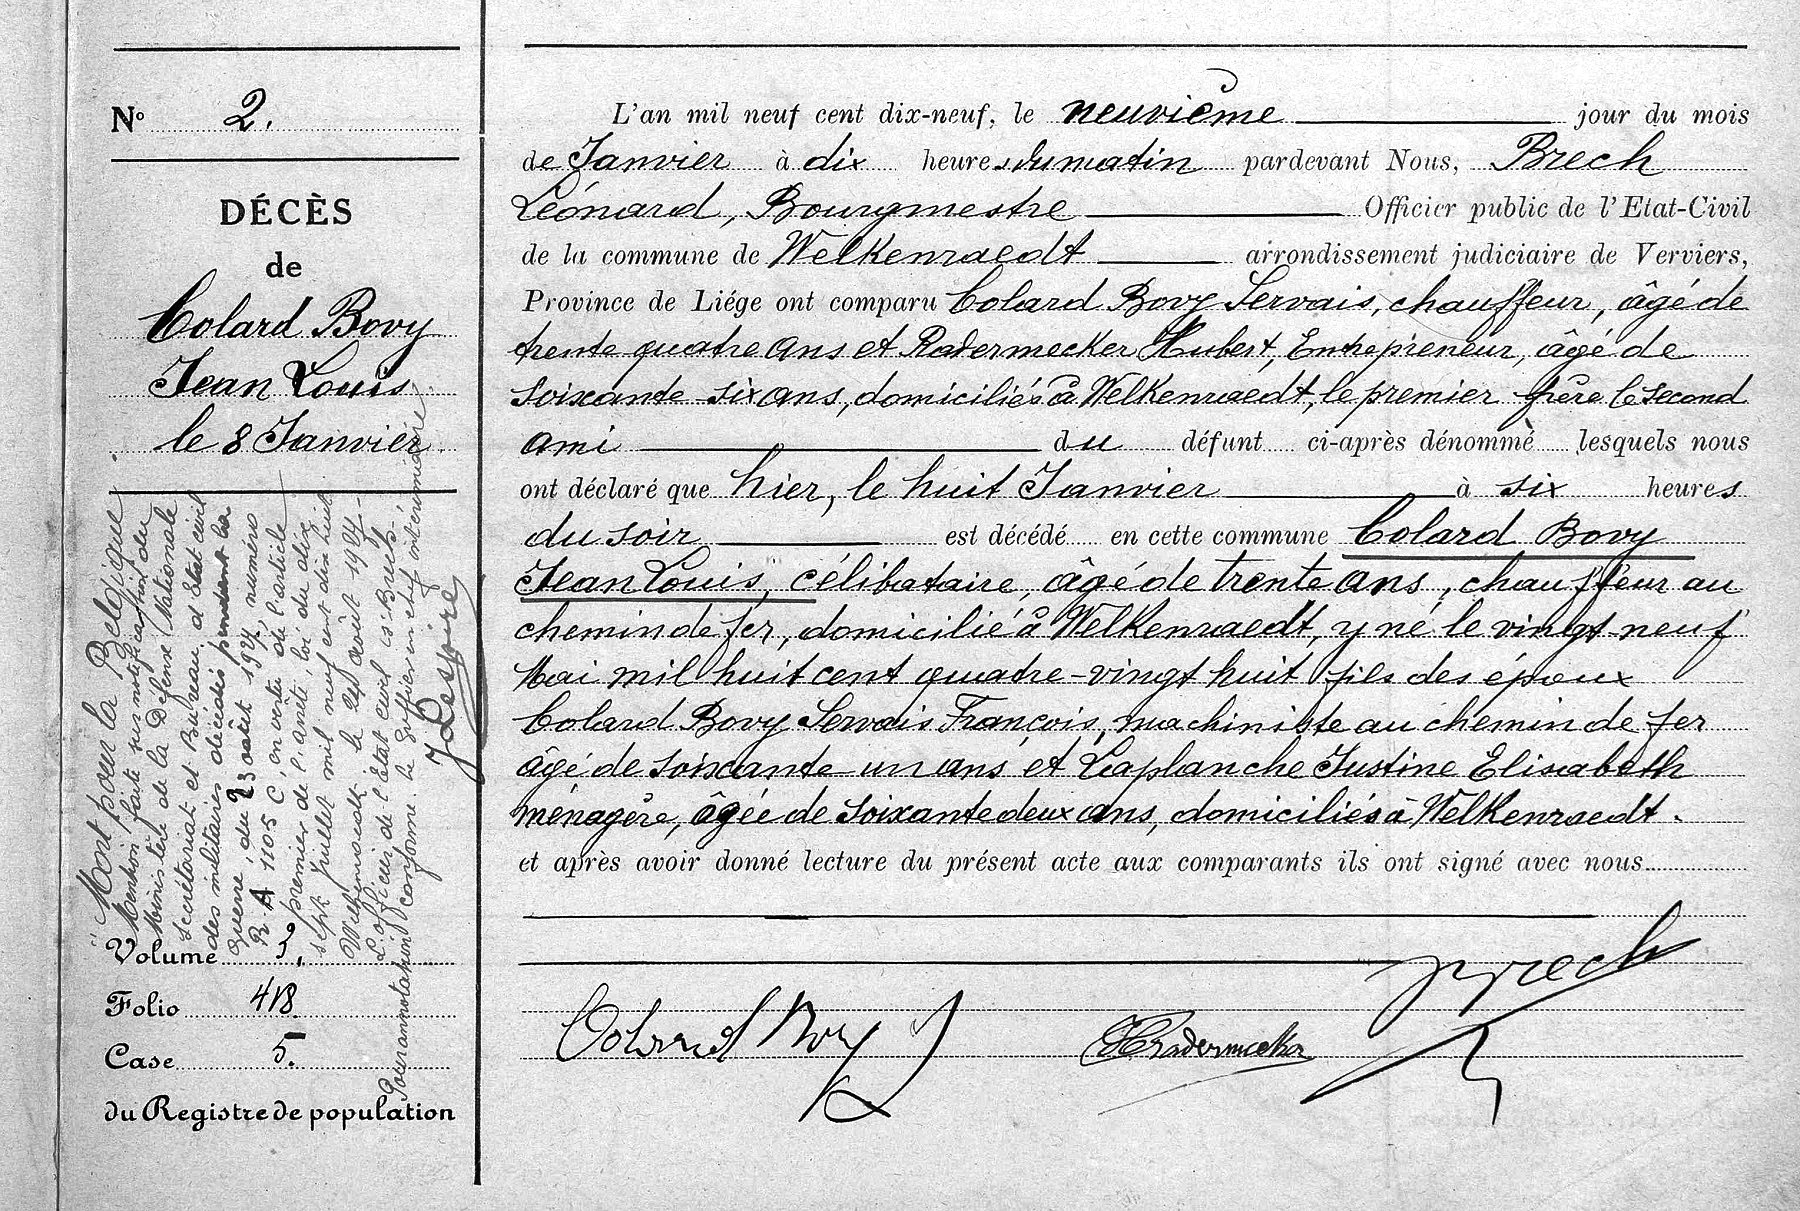 Nº 2.
DÉCÈS
de
Colard Bovy
Jean Louis
le 8 Janvier
"Mort pour la Belgique"
Mention faite sur notification du
Ministère de la Défense Nationale
secrétariat et Bureau d'Etat civil
des militaires décédés pendant la
guerre, du 23 août 1924, numéro
R A 1105 C, en vertu de l'article
premier de l'arrêté, loi du dix
sept Juillet mil neuf cent dix huit
Welkenraedt, le 29 août 1924.-
L'officier de l'Etat civil (s) Bruls.-
Pour annotation conforme. Le Greffier en chef intérimaire,
J Lespire
Volume 3.
Folio 418
Case 5.
du Registre de population
L'an mil neuf cent dix-neuf, le neuvième jour du mois
de Janvier à dix heures du matin pardevant Nous, Brech
Léonard, Bourgmestre Officier public de l'Etat-Civil
de la commune de Welkenraedt arrondissement judiciaire de Verviers,
Province de Liége ont comparu Colard Bovy Servais, chauffeur, âgé de
trente quatre ans et Radermecker Hubert, Entrepreneur, âgé de
soixante-six ans, domiciliés à Welkenraedt, le premier frère le second
ami du défunt ci-après dénommé lesquels nous
ont déclaré que hier, le huit Janvier à six heures
du soir est décédé en cette commune Colard Bovy
Jean Louis, célibataire, âgé de trente ans, chauffeur au
chemin de fer, domicilié à Welkenraedt, y né le vingt neuf
Mai mil huit cent quatre-vingt huit fils des époux
Colard Bovy Servais François, machiniste au chemin de fer
âgé de soixante un ans et Laplanche Justine Elisabeth
ménagère, âgée de soixante deux ans, domiciliés à Welkenraedt.
et après avoir donné lecture du présent acte aux comparants ils ont signé avec nous
Brech
Colard Bovy S
H Radermecker